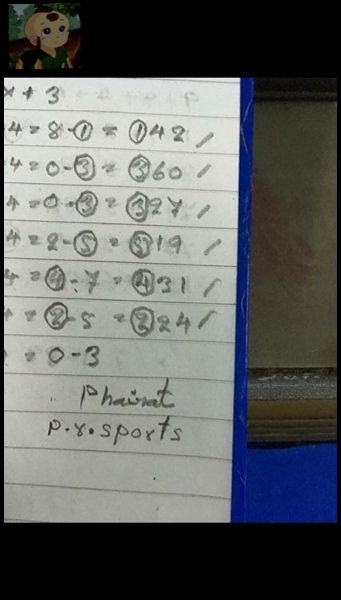 x + 3
4 = 8 - 1 = 142 /
4 = 0 - 3 = 360 /
4 = 0 - 3 = 327 /
4 = 2 - 5 = 519 /
4 = 4 - 7 = 431 /
+ = 2 - 5 = 224 /
= 0 - 3
Phairat
p.r.sports